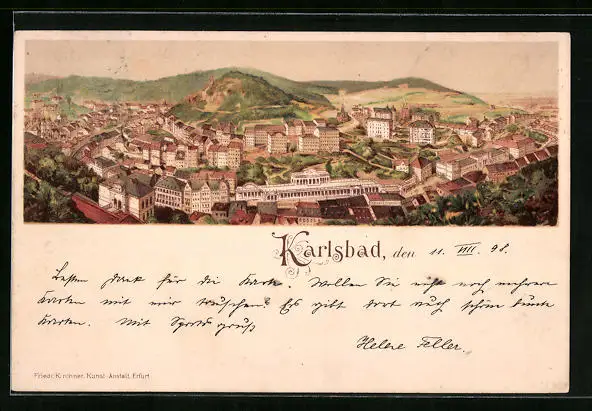 Karlsbad, den 11. VIII. 98.
Besten Dank für die Karte. Wollen Sie nicht noch mehrere
Karten mit mir tauschen? Es gibt dort auch schöne bunte
Karten. Mit Sports gruß
Helene Feller.
Friedr. Kirchner, Kunst-Anstalt, Erfurt